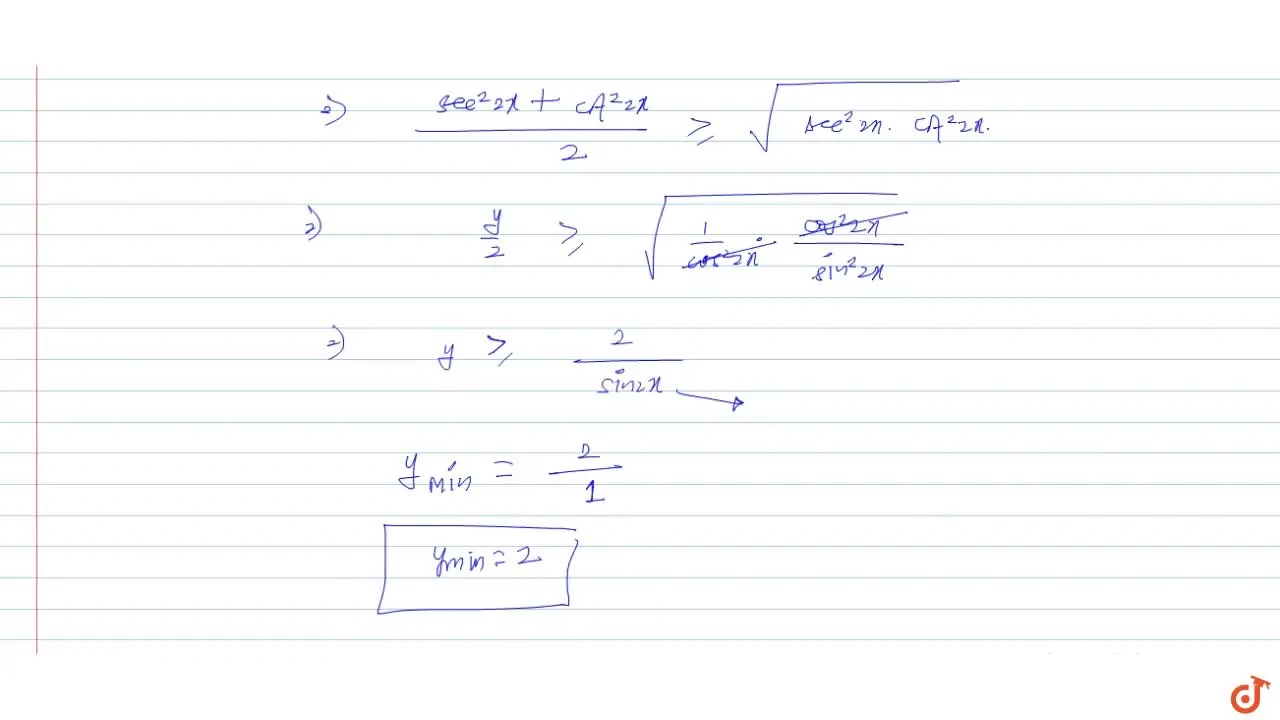 ⇒) sec²2x + cot²2x / 2 ≥ √(sec²2x. cot²2x.)
⇒) y/2 ≥ √(1/cos²2x . cos²2x/sin²2x)
⇒) y ≥ 2/sin2x →
y min = 2/1
ymin = 2